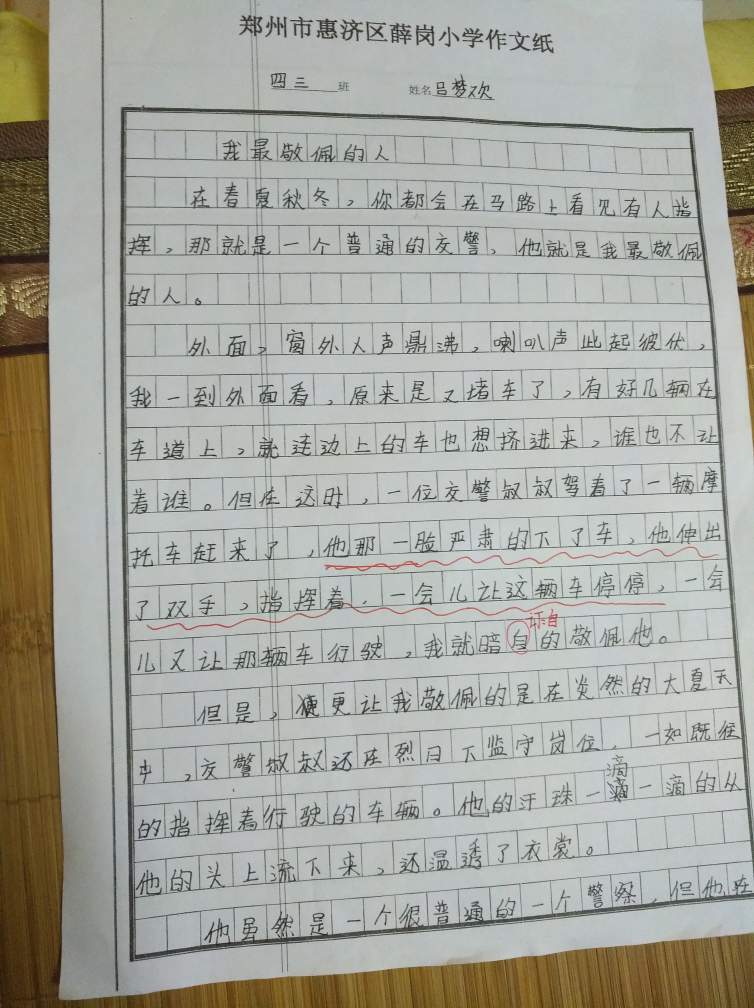 郑州市惠济区薛岗小学作文纸
四三班 姓名吕梦欢
我最敬佩的人
在春夏秋冬，你都会在马路上看见有人指
挥，那就是一个普通的交警，他就是我最敬佩
的人。
外面，窗外人声鼎沸，喇叭声此起彼伏，
我一到外面看，原来是又堵车了，有好几辆在
车道上，就连边上的车也想挤进来，谁也不让
着谁。但在这时，一位交警叔叔驾着了一辆摩
托车赶来了，他那一脸严肃的下了车，他伸出
了双手，指挥着，一会儿让这辆车停停，一会
儿又让那辆车行驶，我就暗自的敬佩他。
但是，更让我敬佩的是在炎然的大夏天
中，交警叔叔还在烈日下监守岗位，一如既往
的指挥着行驶的车辆。他的汗珠一滴一滴的从
他的头上流下来，还温透了衣裳。
他虽然是一个很普通的一个警察，但他在